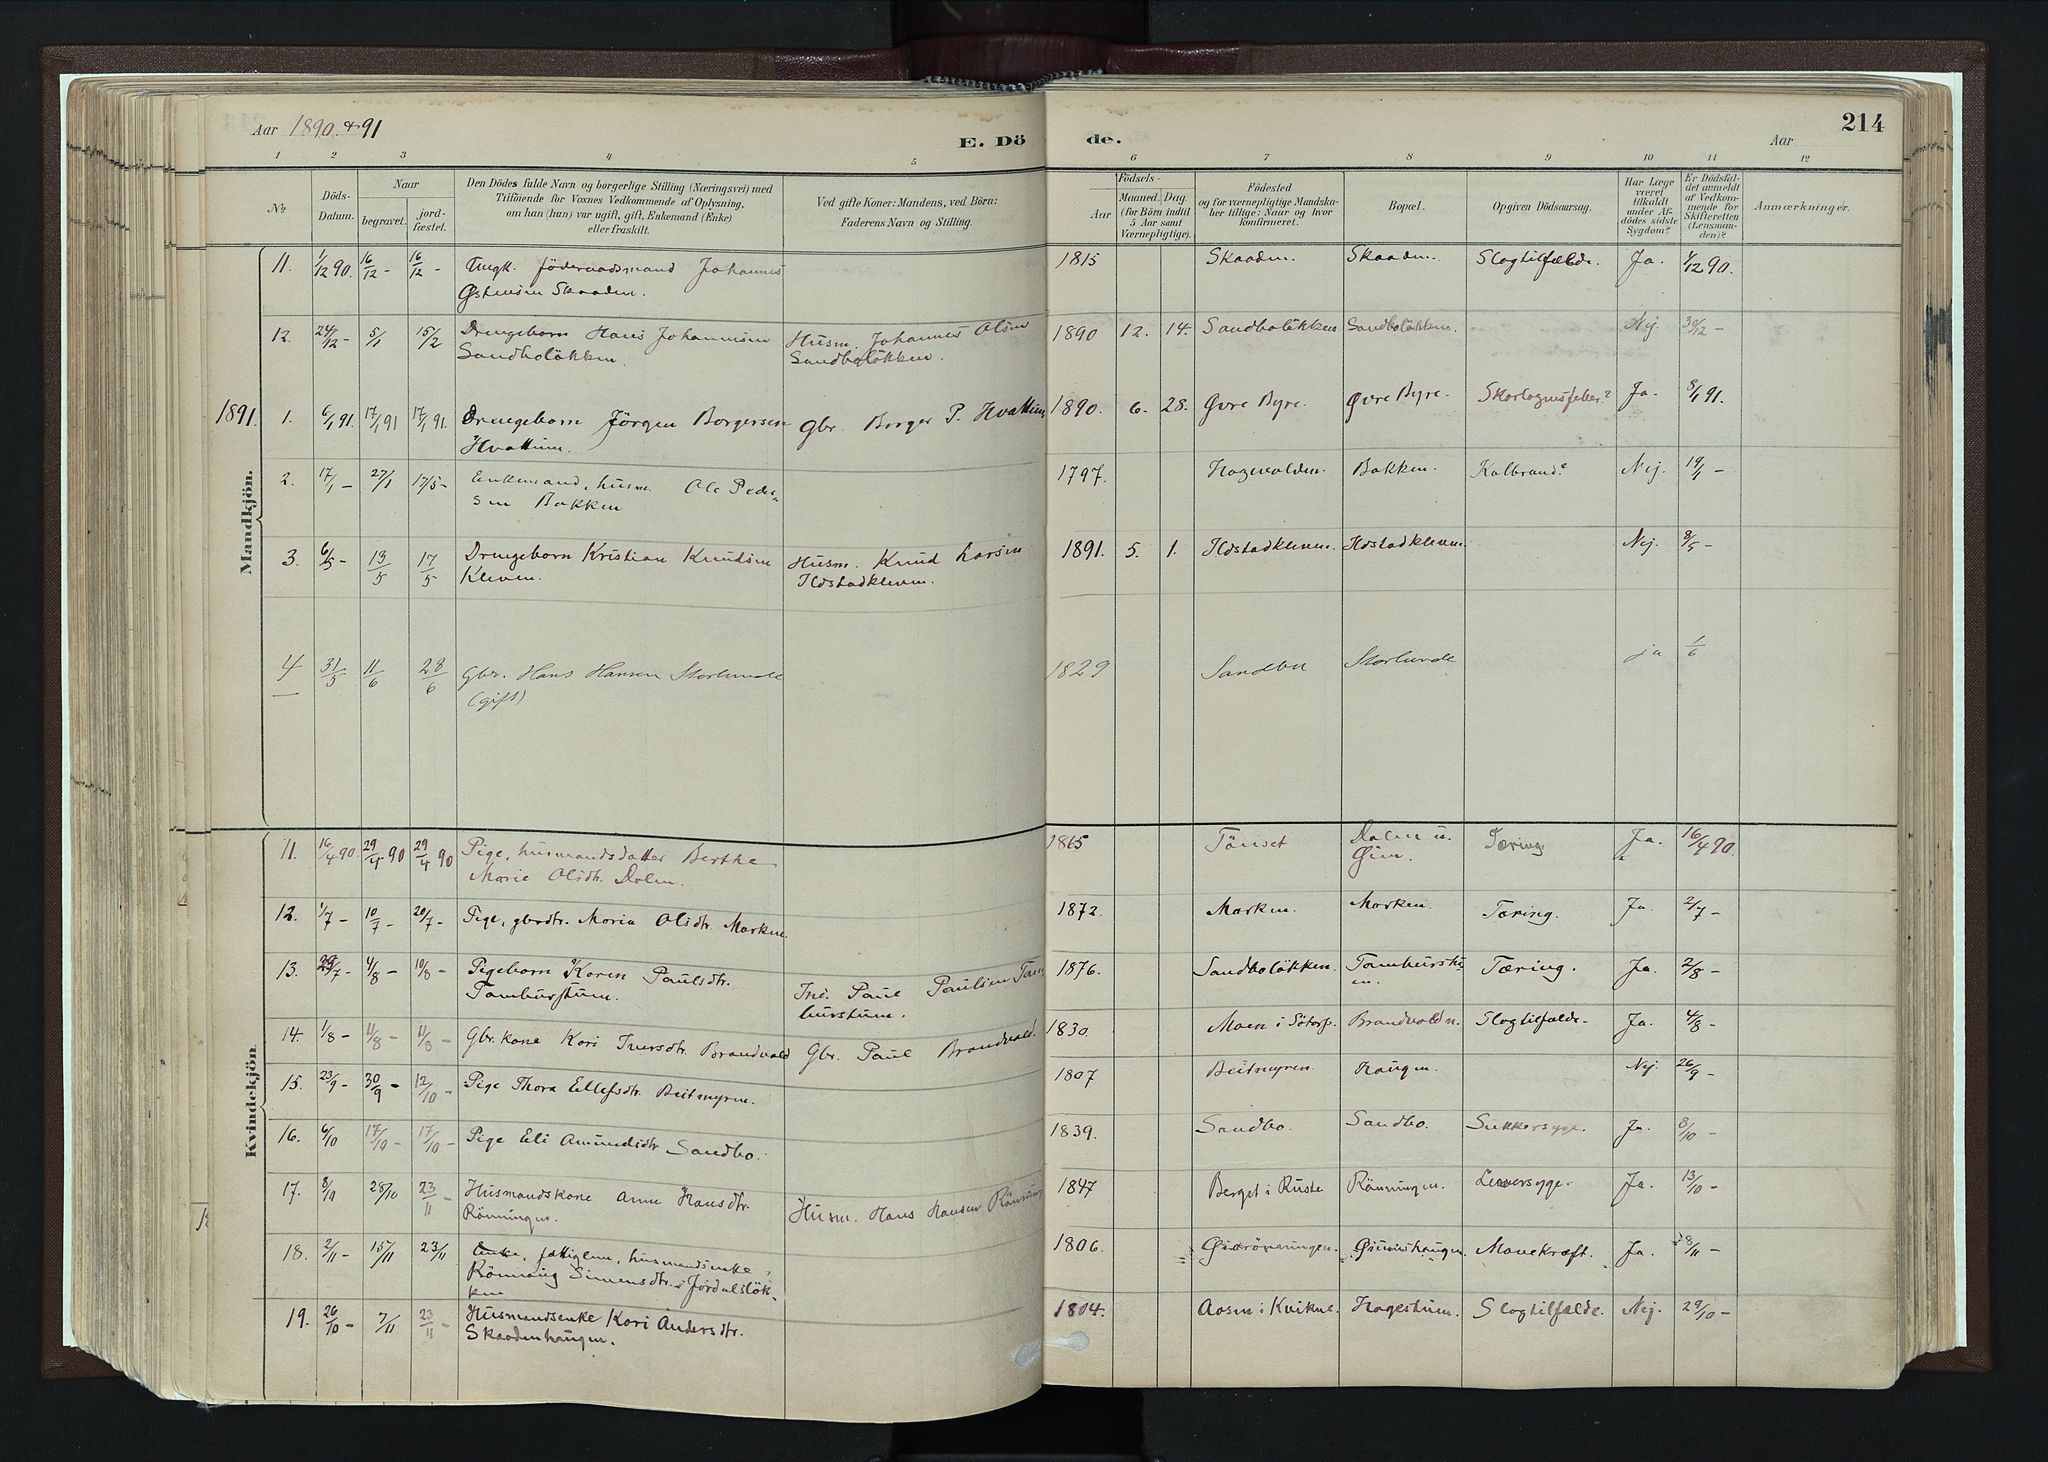 Aar 1890 & 91
E. Dö
de.
Aar
214
1 2 3 4 5 6 7 8 9 10 11 12
№
Döds-
Datum.
Naar
begravet.
jord-
fæstet.
Den Dödes fulde Navn og borgerlige Stilling (Næringsvei) med
Tilföiende for Voxnes Vedkommende af Oplysning,
om han (hun) var ugift, gift, Enkemand (Enke)
eller fraskilt.
Ved gifte Koner: Mandens, ved Börn:
Faderens Navn og Stilling.
Födsels-
Aar
Maaned. Dag.
(for Börn indtil
5 Aar samt
Værnepligtige).
Födested
og for værnepligtige Mandska-
ber tillige: Naar og hvor
konfirmeret.
Bopæl.
Opgiven Dödsaarsag.
Har Læge
været
tilkaldt
under Af-
dödes sidste
Sygdom?
Er Dödsfal-
det anmeldt
af Vedkom-
mende for
Skifteretten
(Lensman-
den)?
Anmærkninger.
Mandkjön.
11. 1/12 90. 16/12 - 16/12 - Ungk. föderaadsmand Johannes 1815 Skaaden. Skaaden. Slagtilfælde. Ja. 1/12 90.
Østensen Skaaden.
12. 24/12 - 5/1 15/2 Drengebarn Hans Johannesen Husm. Johannes Olsen 1890 12. 14. Sandboløkken Sandboløkken. Nej. 30/12 -
Sandboløkken. Sandboløkken.
1891. 1. 6/1 91. 17/1 91 17/1 91. Drengebarn Jörgen Borgersen Gbr. Borger P. Hvattum 1890. 6. 28. Øvre Byre. Øvre Byre. Skarlagensfeber? Ja. 8/1 91.
Hvattum.
2. 17/1 - 27/1 17/5 - Enkemand, husm. Ole Peder- 1797. Hagevolden. Bakken. Kolbrand? Nej. 19/1 -
sen Bakken
3. 6/5 - 13/5 17/5 Drengebarn Kristian Knudsen Husm. Knud Larsen 1891. 5. 1. Ildstadkleven. Ildstadkleven. Nej. 8/5 -
Kleven. Ildstadkleven.
4 31/5 11/6 28/6 Gbr. Hans Hansen Storlunde 1829 Sandbu Storlunde ja 1/6
(gift)
Kvindekjön
11. 16/4 90 29/4 90 29/4 90 Pige, husmandsdatter Berthe 1865 Tönset Dalen u. Tæring. Ja. 16/4 90.
Marie Olsdtr. Dalen. Øien.
12. 1/7 - 10/7 - 20/7 - Pige, gbrdtr. Maria Olsdtr. Marken 1872. Marken. Marken. Tæring. Ja. 2/7 -
13. 29/7 - 4/8 - 10/8 - Pigebarn Karen Paulsdtr. Ind. Paul Paulsen Tam- 1876. Sandboløkken. Tamburstu- Tæring. Ja. 2/8 -
Tamburstuen. burstuen. en.
14. 1/8 - 4/8 - 4/8 - Gbr.kone Kari Iversdtr. Brandvold Gbr. Paul Brandvold. 1830 Moen i Sötorp. Brandvolden. Slagtilfælde. Ja. 4/8 -
15. 23/9 - 30/9 - 12/10 - Pige Thora Ellefsdtr. Beitmyren. 1807 Beitmyren. Haugen. Nej 26/9 -
16. 6/10 17/10 - 17/10 - Pige Eli Amundsdtr Sandbo. 1839. Sandbo. Sandbo. Sukkersyge. Ja. 8/10 -
17. 8/10 28/10 23/11 - Husmandskone Anne Hansdtr. Husm. Hans Hansen Rönningen 1847 Berget i Ruste Rönningen. Leversyge. Ja. 13/10 -
Rönningen.
18. 2/11 - 15/11 23/11 Enke, fattiglem, husmandsenke, 1806. Gisrönningen. Gisrönningen. Mavekræft. Ja. 8/11 -
Rönnaug Simensdtr. i Jørdalsløk-
ken
19. 26/10 - 7/11 23/11 - Husmandsenke Kari Andersdtr. 1804. Aasen i Kvikne. Hagestuen. Slagtilfælde. Nej. 29/10 -
Skaadenhaugen.